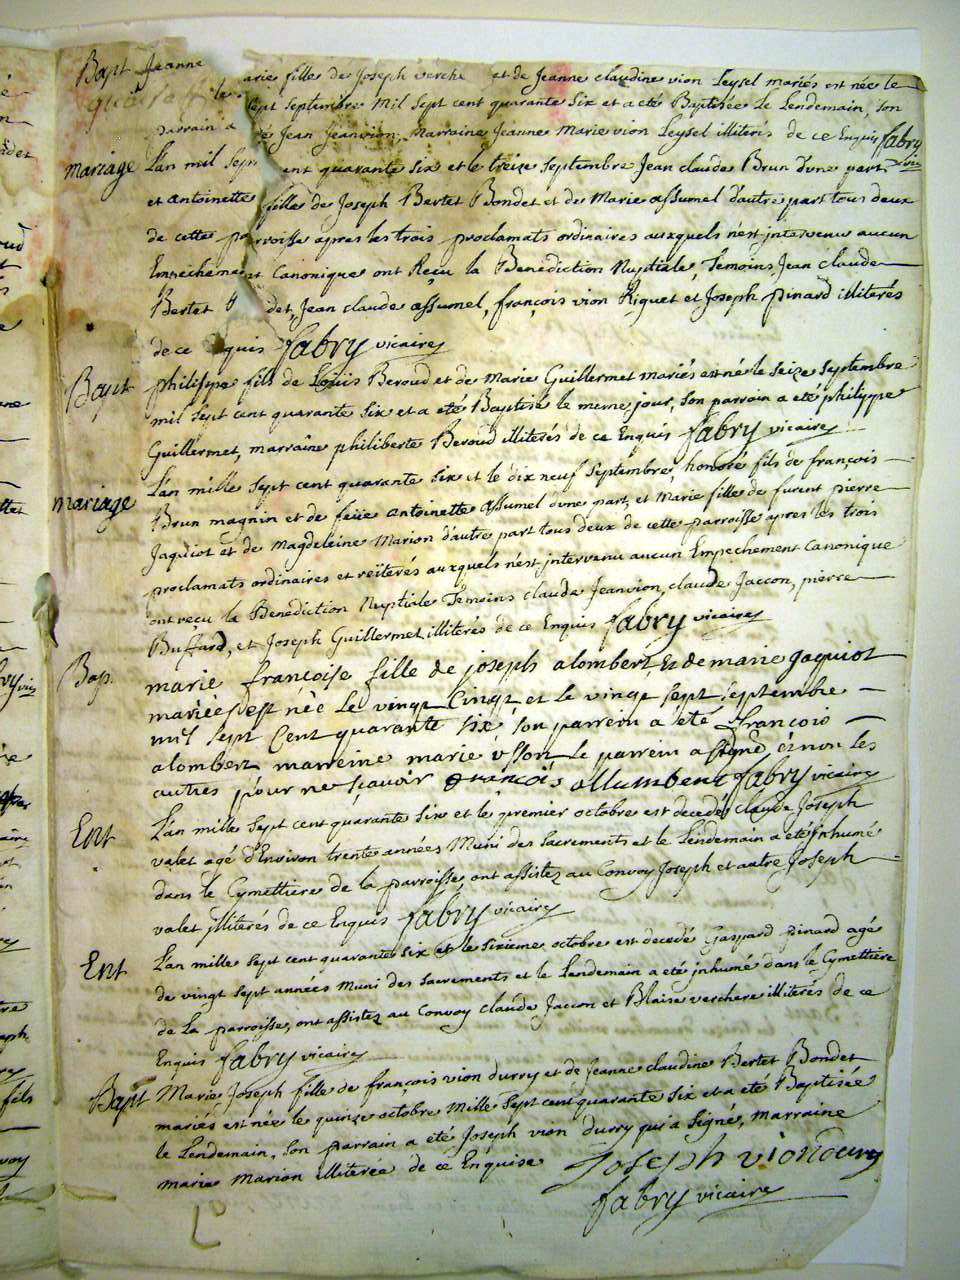 Bapt Jeanne marie fille de Joseph verche et de Jeanne claudine vion Leysel mariés est née le
sept septembre Mil Sept cent quarante Six et a eté Baptisée le Lendemain, Son
parrain a Jean Jeanvion, Marraine Jeanne Marie vion Leysel illiterés de ce Enquis fabry vic
mariage L'an mil Sept cent quarante Six et le treize Septembre Jean claude Brun d'une part
et Antoinette fille de Joseph Bertet Bondet et de Marie assumel d'autre part tous deux
de cette parroisse apres les trois proclamats ordinaires auxquels n'est jntervenu aucun
Empechement Canonique ont Reçu la Benediction Nuptiale, Temoins Jean claude
Bertet Bondet, Jean claude assumel, françois vion Riguet et Joseph pinard illiterés
de ce Enquis fabry vicaire
Bapt philippe fils de Loüis Beroud et de Marie Guillermet mariés est né le Seize Septembre
mil Sept cent quarante Six et a eté Baptisé le meme jour, Son parrain a eté philippe
Guillermet, marraine philiberte Beroud illiterés de ce Enquis fabry vicaire
mariage L'an mille Sept cent quarante Six et le dix neuf Septembre, honoré fils de françois
Brun magnin et de feüe antoinette Assumel d'une part, et Marie fille de furent pierre
Jaquiot et de Magdeleine Marion d'autre part tous deux de cette parroisse apres les trois
proclamats ordinaires et reïterés auxquels n'est jntervenu aucun Empechement Canonique
ont reçu la Benediction Nuptiale Temoins claude Jeanvion, claude Jaccon, pierre
Buffard, et Joseph Guillermet illiterés de ce Enquis fabry vicaire
Bap. marie françoise fille de joseph alombert et de marie jaquiot
mariés est née le vingt Cinqt et le vingt sept septembre
mil sept Cent quarante six son parrein a été françois
alombert marreine marie usson le parrein a signé et non les
autres pour ne sçavoir françois allumbert fabry vicaire
Ent L'an mille Sept cent quarante Six et le premier octobre est decedé claude Joseph
valet agé d'Environ trente années Muni des Sacrements et le Lendemain a eté jnhumé
dans le Cymettiere de la parroisse, ont assistez au Convoy Joseph et autre Joseph
valet jlliterés de ce Enquis fabry vicaire
Ent L'an mille Sept cent quarante Six et le Sixieme octobre est decedé Gaspard pinard agé
de vingt Sept années Muni des Sacrements et le Lendemain a eté jnhumé dans le Cymettiere
de La parroisse, ont assistez au Convoy claude Jaccon et Blaise verchere illiterés de ce
Enquis fabry vicaire
Bapt Marie Joseph fille de françois vion durry et de Jeanne claudine Bertet Bondet
mariés est née le quinze octobre Mille Sept cent quarante Six et a eté Baptisée
le Lendemain, Son parrain a eté Joseph vion durry qui a Signé, marraine
marie Marion illiterée de ce Enquise Joseph viondury
fabry vicaire